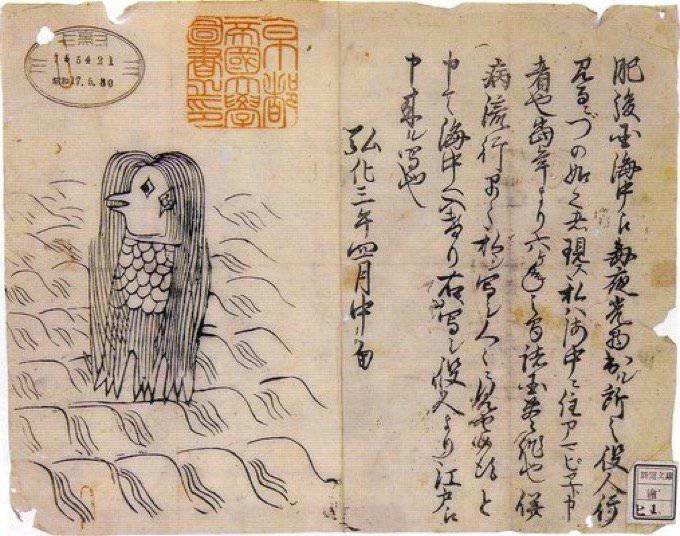 肥後国海中え毎夜光物出ル所之役人行
見るニづの如之者現ス私ハ海中ニ住アマビヱト申
者也当年より六ヶ年之間諸国豊作也併
病流行早々私シ写シ人々ニ見セ候得と
申て海中へ入けり右写シ役人より江戸え
申来ル写也
弘化三年四月中旬
京都
帝國大學
圖書之印
昭和17.5.30
新聞文庫
繪